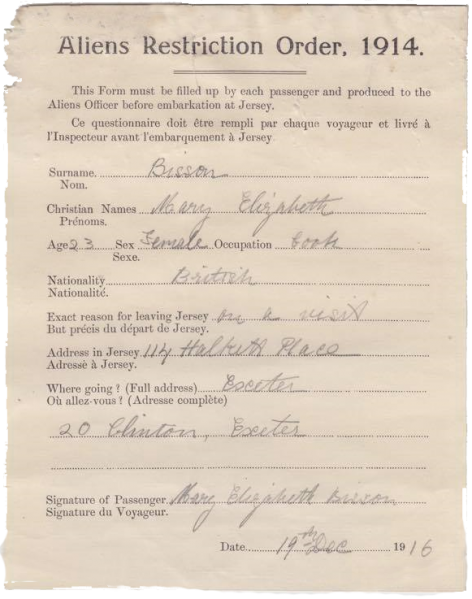 Aliens Restriction Order, 1914.
This Form must be filled up by each passenger and produced to the
Aliens Officer before embarkation at Jersey.
Ce questionnaire doit être rempli par chaque voyageur et livré à
l'Inspecteur avant l'embarquement à Jersey
Surname. Bisson
Nom.
Christian Names Mary Elizabeth
Prénoms.
Age 23 Sex Female Occupation Cook
Sexe.
Nationality British
Nationalité.
Exact reason for leaving Jersey on a visit
But précis du départ de Jersey.
Address in Jersey 114 Halkett Place
Adressè à Jersey.
Where going? (Full address) Exceter
Où allez-vous? (Adresse complète)
20 Clinton, Exeter
Signature of Passenger. Mary Elizabeth Bisson
Signature du Voyageur.
Date 19th Dec 1916